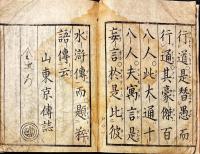 行道是督愚而
行通其豪傑百
八人。此大通十
八人。夫寓言是
妄言於是比彼
水滸傳而題粹
語傳云
山東京傳誌